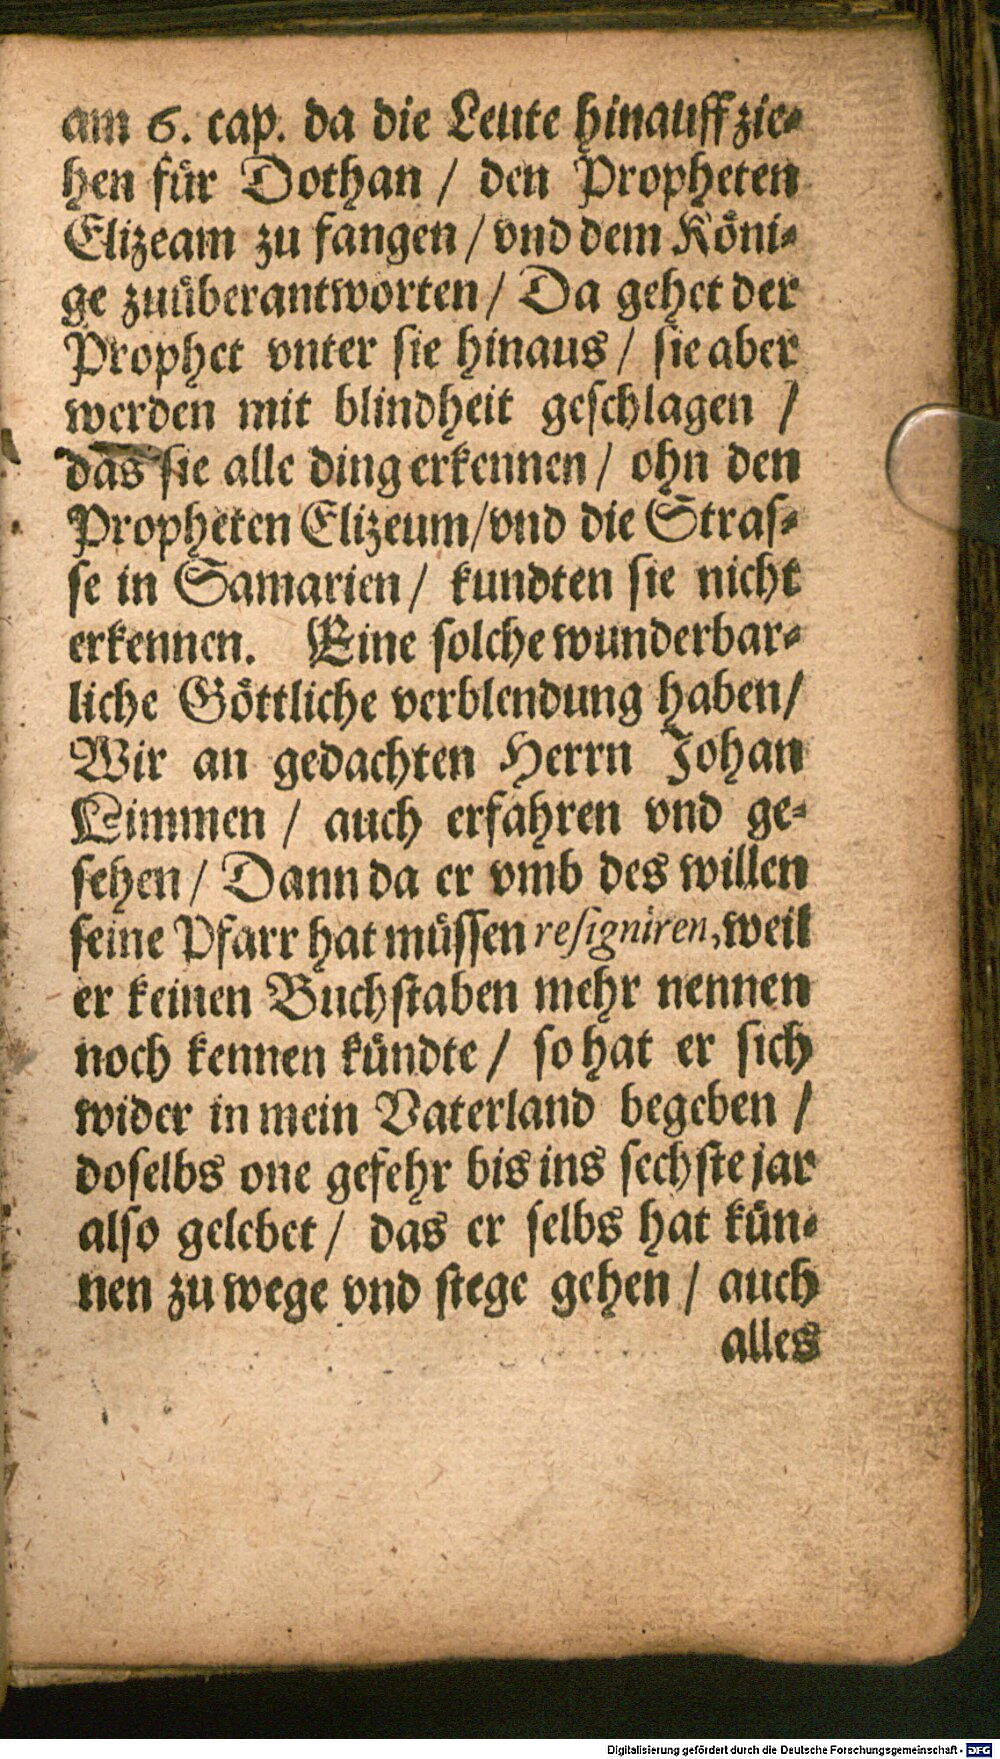 am 6. cap. da die Leute hinauff zie-
hen für Dothan / den Propheten
Elizeam zu fangen / vnd dem Köni-
ge zuüberantworten / Da gehet der
Prophet vnter sie hinaus / sie aber
werden mit blindheit geschlagen /
das sie alle ding erkennen / ohn den
Propheten Elizeum / vnd die Stras-
se in Samarien / kundten sie nicht
erkennen. Eine solche wunderbar-
liche Göttliche verblendung haben /
Wir an gedachten Herrn Johan
Limmen / auch erfahren vnd ge-
sehen / Dann da er vmb des willen
seine Pfarr hat müssen resigniren, weil
er keinen Buchstaben mehr nennen
noch kennen kündte / so hat er sich
wider in mein Vaterland begeben /
doselbs one gefehr bis ins sechste jar
also gelebet / das er selbs hat kün-
nen zu wege vnd stege gehen / auch
alles
Digitalisierung gefördert durch die Deutsche Forschungsgemeinschaft - DFG